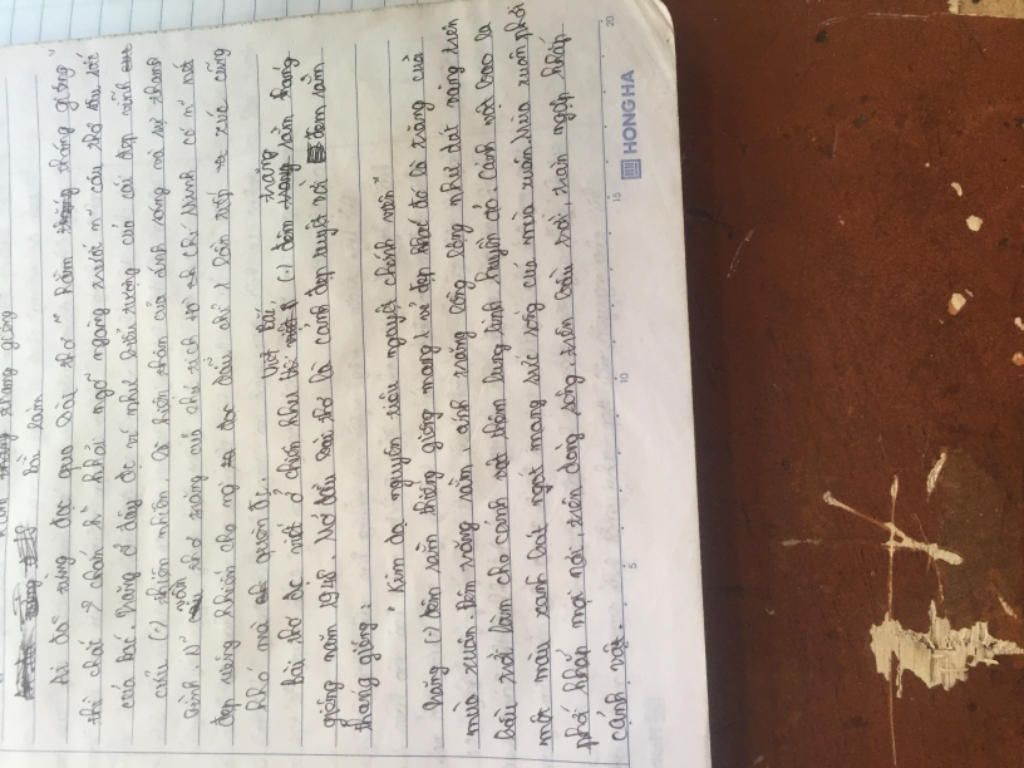 Bài làm
Ai đã từng đọc qua bài thơ " Rằm tháng giêng "
thì chắc → chắn k° khỏi ngỡ ngàng trước n~ câu thơ
của Bác. Trăng ở đây đc ví như biểu tượng của cái đẹp vĩnh
cửu (.) thiên nhiên, là hiện thân của ánh sáng và sự thanh
bình. N~ vần thơ trăng của chủ tịch Hồ Chí Minh có n~ nét
đẹp riêng khiến cho mọi đọc dẫu chỉ 1 lần tiếp xúc cũng
khó mà quên đi.
Bài thơ đc viết ở chiến khu Việt Bắc (.) đêm trăng rằm tháng
giêng năm 1948. Mở đầu bài thơ là cảnh đẹp tuyệt vời đêm rằm
tháng giêng:
" Kim dạ nguyên tiêu nguyệt chính viên "
Trăng (.) đêm rằm tháng giêng mang 1 vẻ đẹp khác đó là trăng của
mùa xuân. Đêm trăng rằm, ánh trăng lồng lộng như dát vàng trên
bầu trời làm cho cảnh vật thêm lung linh huyền ảo. Cảnh vật bao la
một màu xanh bát ngát mang sức sống của mùa xuân. Mùa xuân phơi
phới khắp mọi nơi, trên dòng sông, trên bầu trời, tràn ngập khắp
cảnh vật.
HONG HA
5
10
15
20